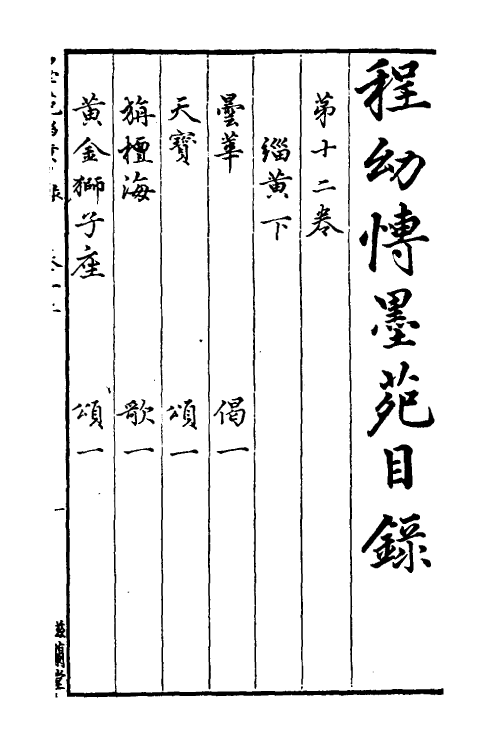 程幼博墨苑目錄
第十二卷
緇黃下
曇華 偈一
天寶 頌一
栴檀海 歌一
黃金獅子座 頌一
一
滋蘭堂